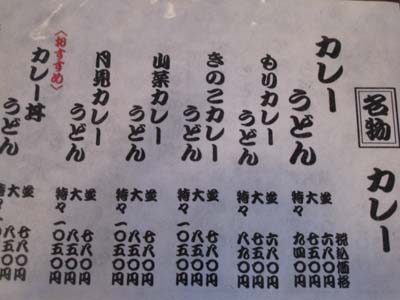 名物 カレー
カレーうどん
税込価格
並 六八〇円
大 七五〇円
特々 九四〇円
もりカレーうどん
並 六八〇円
大 七五〇円
特々 九四〇円
きのこカレーうどん
並 七八〇円
大 八五〇円
特々 一〇五〇円
山菜カレーうどん
並 七八〇円
大 八五〇円
特々 一〇五〇円
月見カレーうどん
並 七八〇円
大 八五〇円
特々 一〇五〇円
〈おすすめ〉
カレー丼うどん